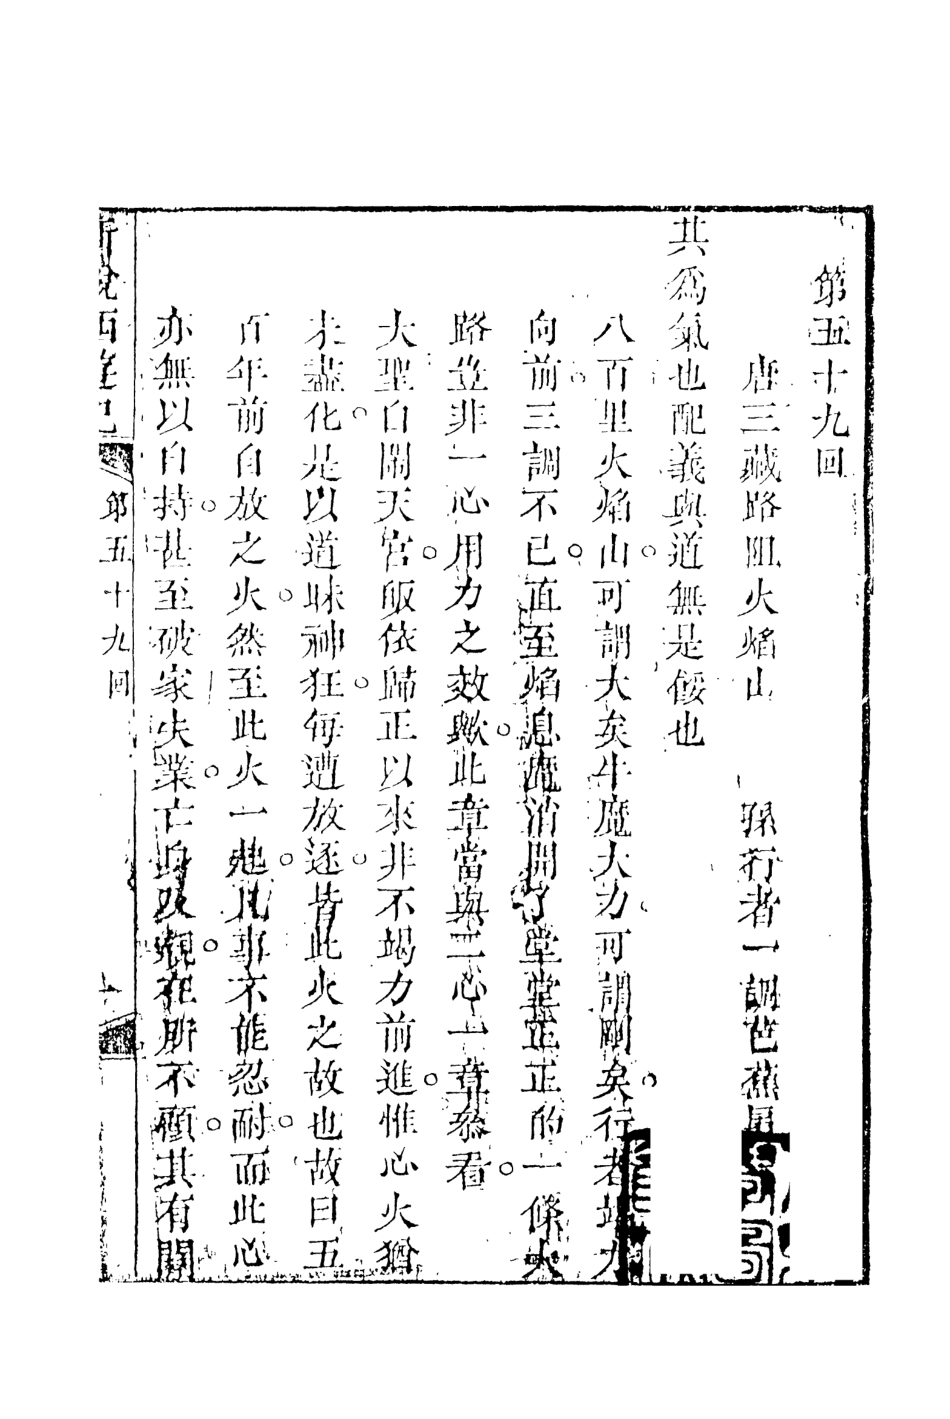 第五十九回
唐三藏路阻火焰山　孫行者一調芭蕉扇
其為氣也配義與道無是餒也
八百里火焰山可謂大矣牛魔大力可謂剛矣行者竭力
向前三調不已直至焰息魔消開了堂堂正正的一條大
路豈非一心用力之效歟此章當與二心一章叅看
大聖自鬧天宮皈依歸正以來非不竭力前進惟心火猶
未盡化是以道昧神狂每遭放逐皆此火之故也故曰五
百年前自放之火然至此火一起凡事不能忍耐而此心
亦無以自持甚至破家失業亡身及親在所不顧其有關
新說西遊記
第五十九回